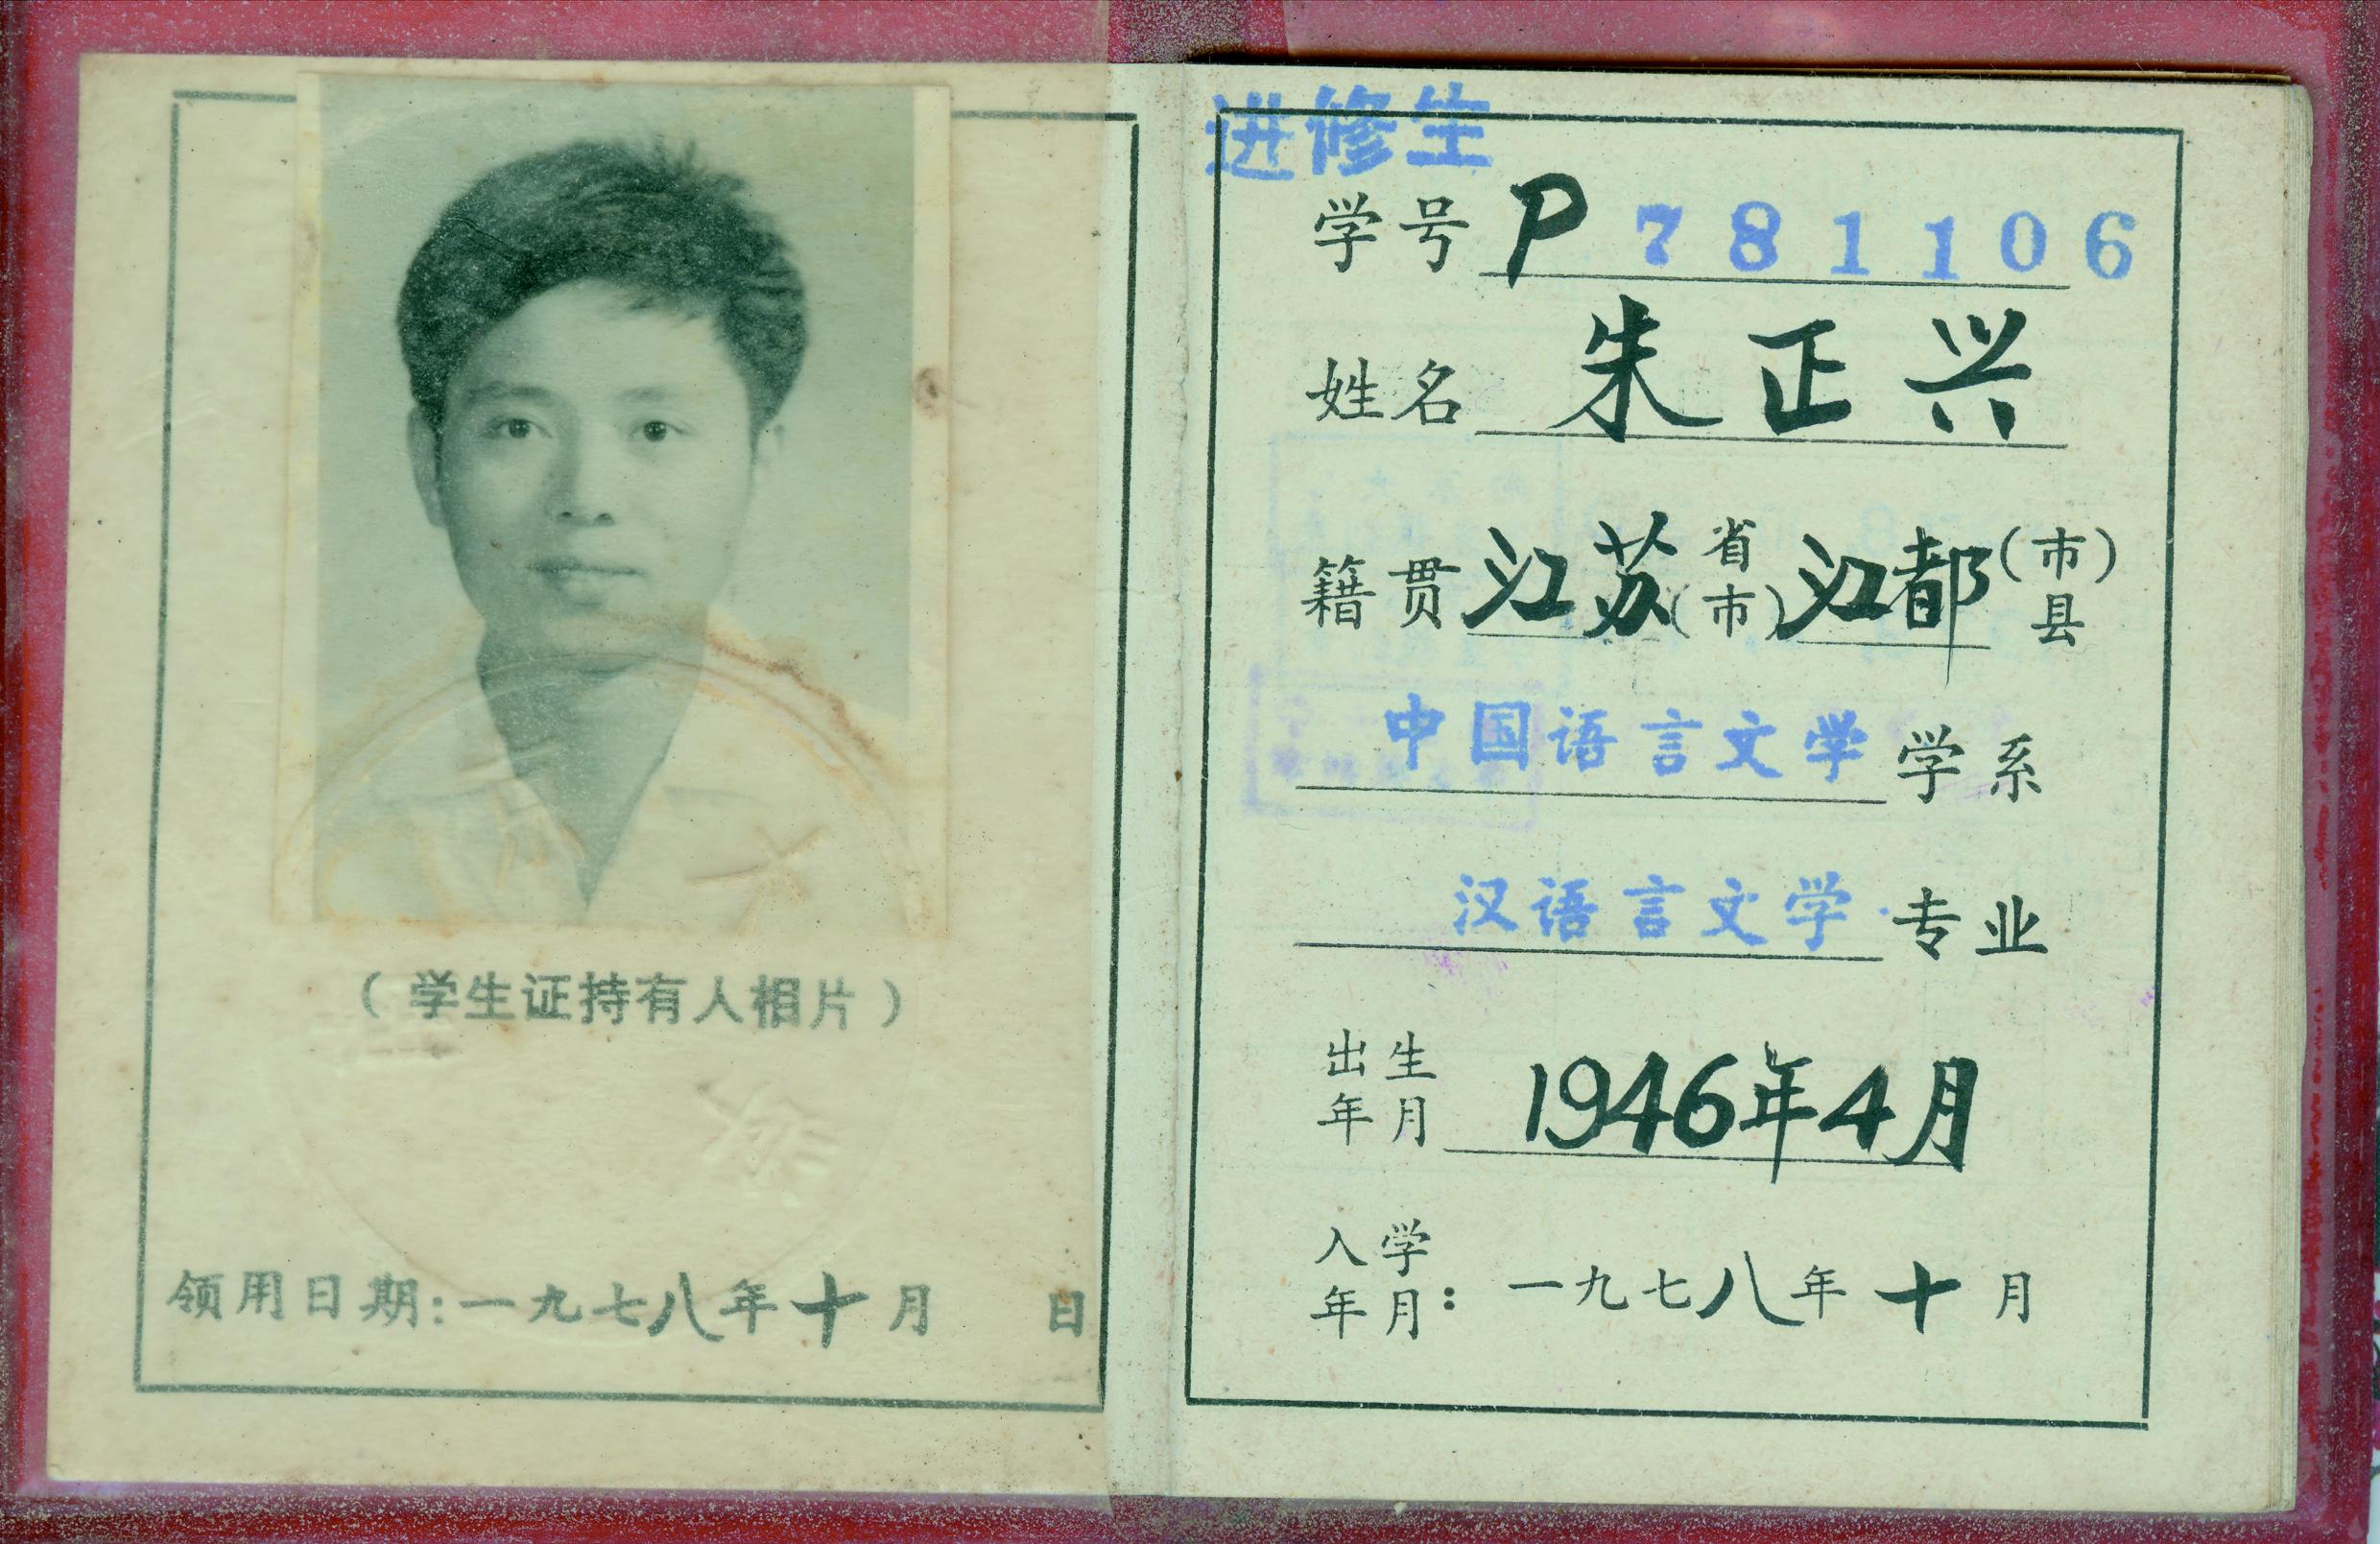 （学生证持有人相片）
领用日期:一九七八年十月 日
进修生
学号 P 781106
姓名 朱正兴
籍贯 江苏 省(市) 江都 (市)县
中国语言文学 学系
汉语言文学 专业
出生年月 1946年4月
入学年月: 一九七八年十月